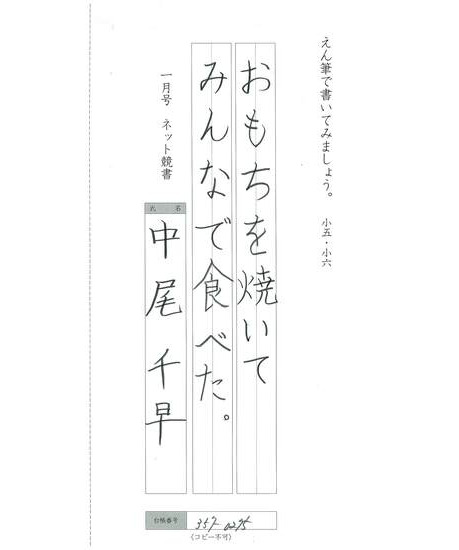 えん筆で書いてみましょう。 小五・小六
おもちを焼いて
みんなで食べた。
一月号 ネット競書
氏名
中尾 千早
台帳番号 357-0295
〈コピー不可〉